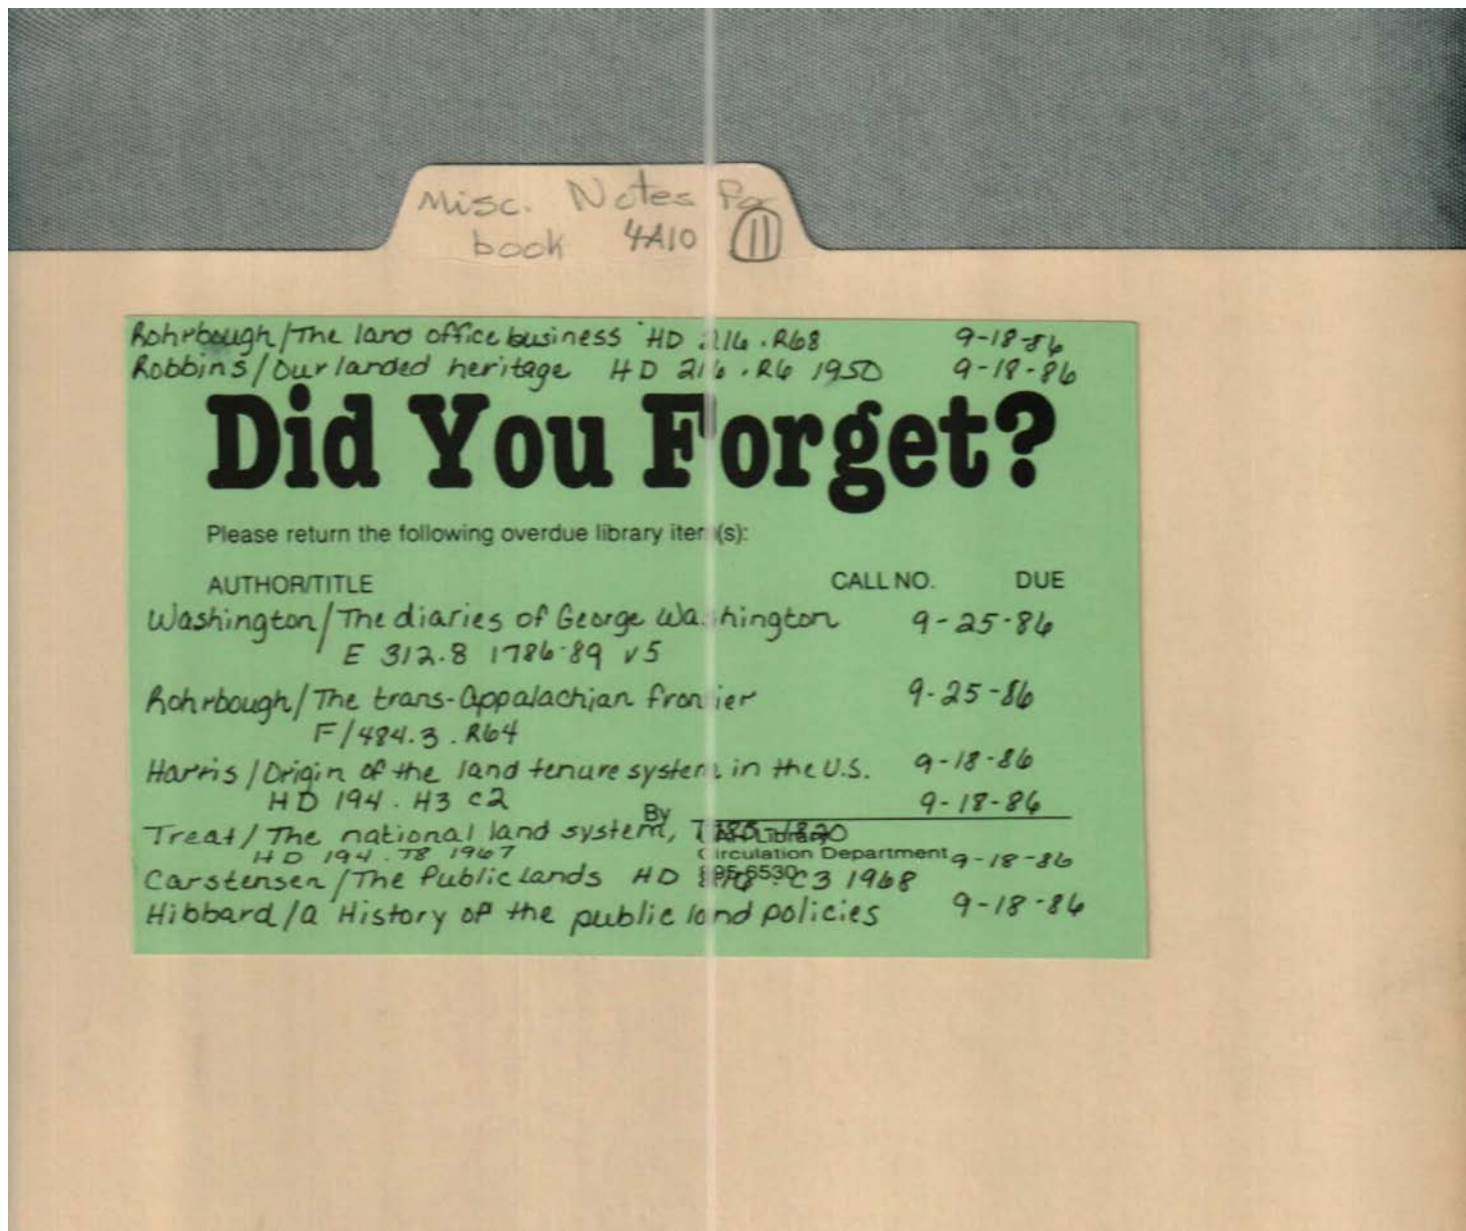 Misc. Notes for
book 4A10 11
Rohrbough/The land office business HD 216 .R68 9-18-86
Robbins/Our landed heritage HD 216 .R6 1950 9-18-86
Did You Forget?
Please return the following overdue library item(s):
AUTHOR/TITLE CALL NO. DUE
Washington/The diaries of George Washington 9-25-86
E 312.8 1786-89 v5
Rohrbough/The trans-Appalachian frontier 9-25-86
F/484.3 .R64
Harris/Origin of the land tenure system in the U.S. 9-18-86
HD 194 .H3 c2 9-18-86
By
Treat/The national land system, 1785-1820
Library
HD 194 .T8 1967
Circulation Department 9-18-86
895-6530
Carstensen/The Public lands HD .C3 1968
Hibbard/a History of the public land policies 9-18-86